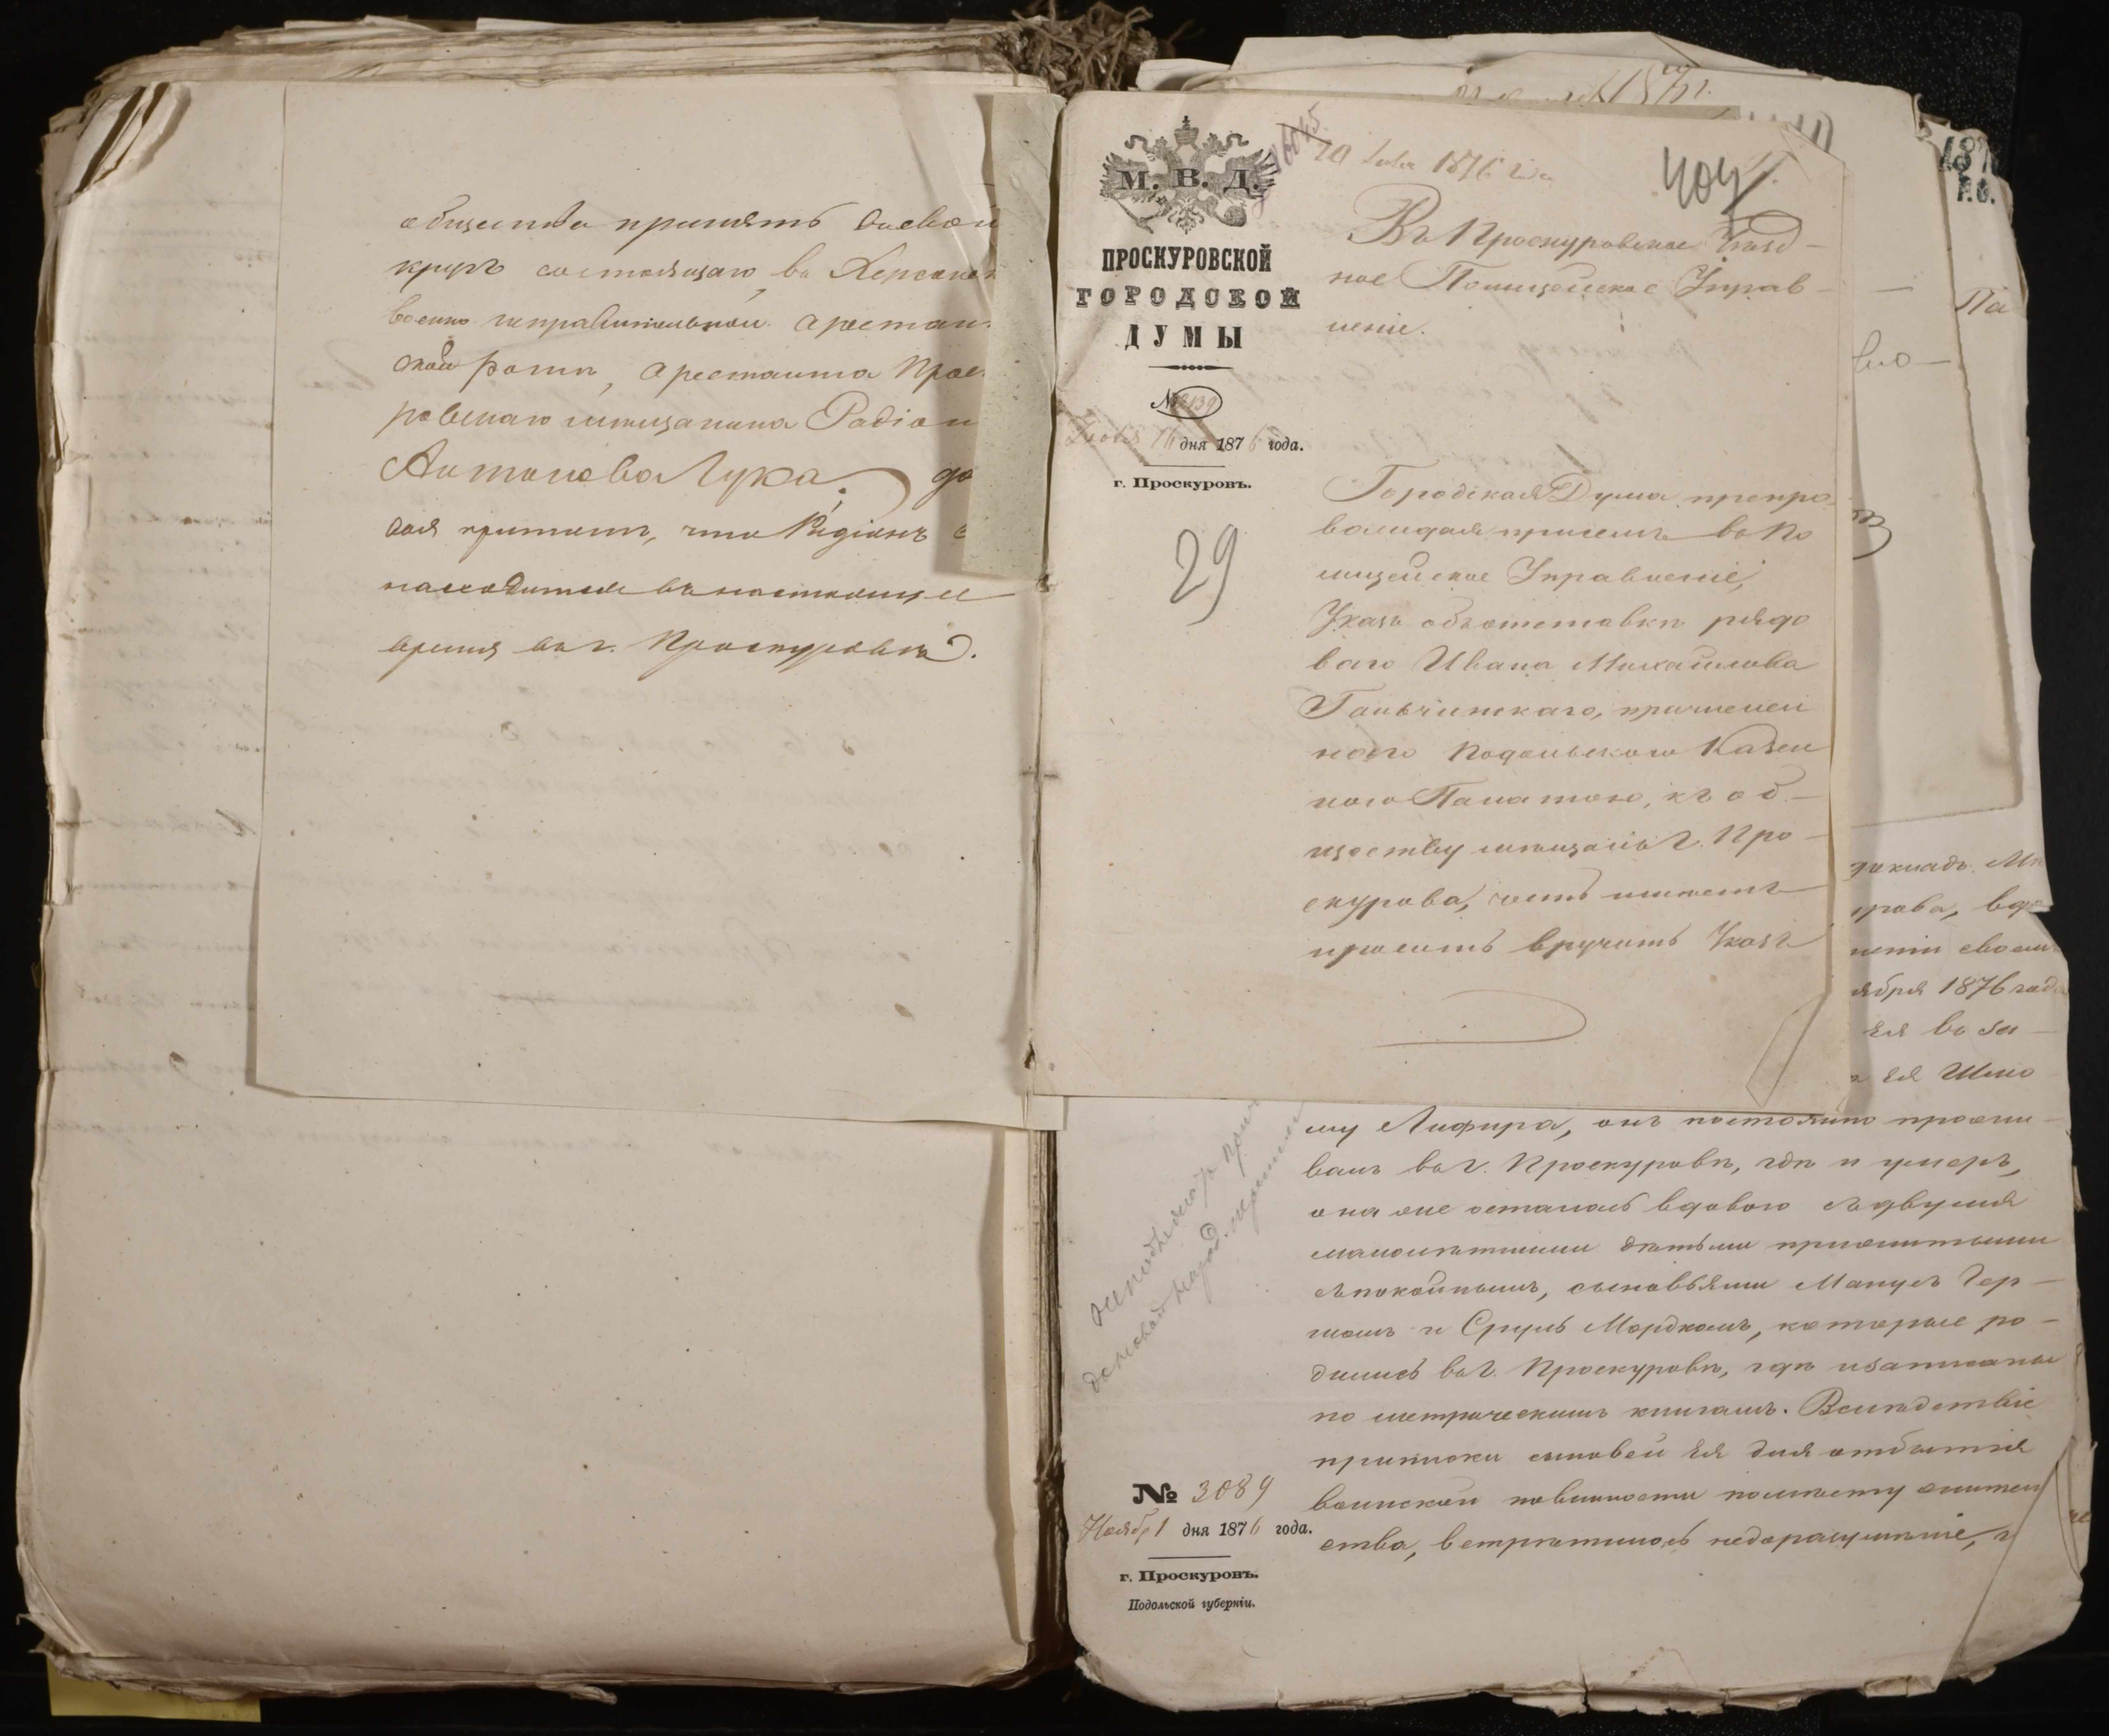 общества принять въ свой
кругъ состоящаго въ Херсонс
военно исправительной арестан
ской ротѣ, арестанта Прос
ровскаго мѣщанина Радіон
Антонова Лука, до
нося притомъ, что Радіонъ
находится въ настоящее
время въ г. Проскуровѣ.
М. В. Д.
ПРОСКУРОВСКОЙ
ГОРОДСКОЙ
ДУМЫ
№ 2139
16 дня 1876 года.
г. Проскуровъ.
29
1876 года
404
Въ Проскуровское Уѣзд-
ное Полицейское Управ-
леніе.
Городская Дума препро-
вождая при семъ въ По
лицейское Управленіе,
Указъ объ отставкѣ рядо
ваго Ивана Михайлова
Гольчинскаго, причислен
наго Подольскою Казен
ною Палатою, къ об-
ществу мѣщанъ г. Про-
скурова, честь имѣетъ
просить вручить Указъ
докладъ
рова, вдо
неніи своемъ
ября 1876 года
ея въ за-
ея Шмо
му Лифира, онъ постоянно прожи-
валъ въ г. Проскуровѣ, гдѣ и умеръ,
она же осталась вдовою съ двумя
малолѣтними дѣтьми прижитыми
съ покойнымъ, сыновьями Мануль Гер-
шомъ и Сруль Мордкомъ, которые ро-
дились въ г. Проскуровѣ, гдѣ и записаны
по метрическимъ книгамъ. Вслѣдствіе
приписки сыновей ея для отбытія
воинской повинности по мѣсту житель
ства, встрѣтилось недоразумѣніе,
№ 3089
Ноябр 1 дня 1876 года.
г. Проскуровъ.
Подольской губерніи.